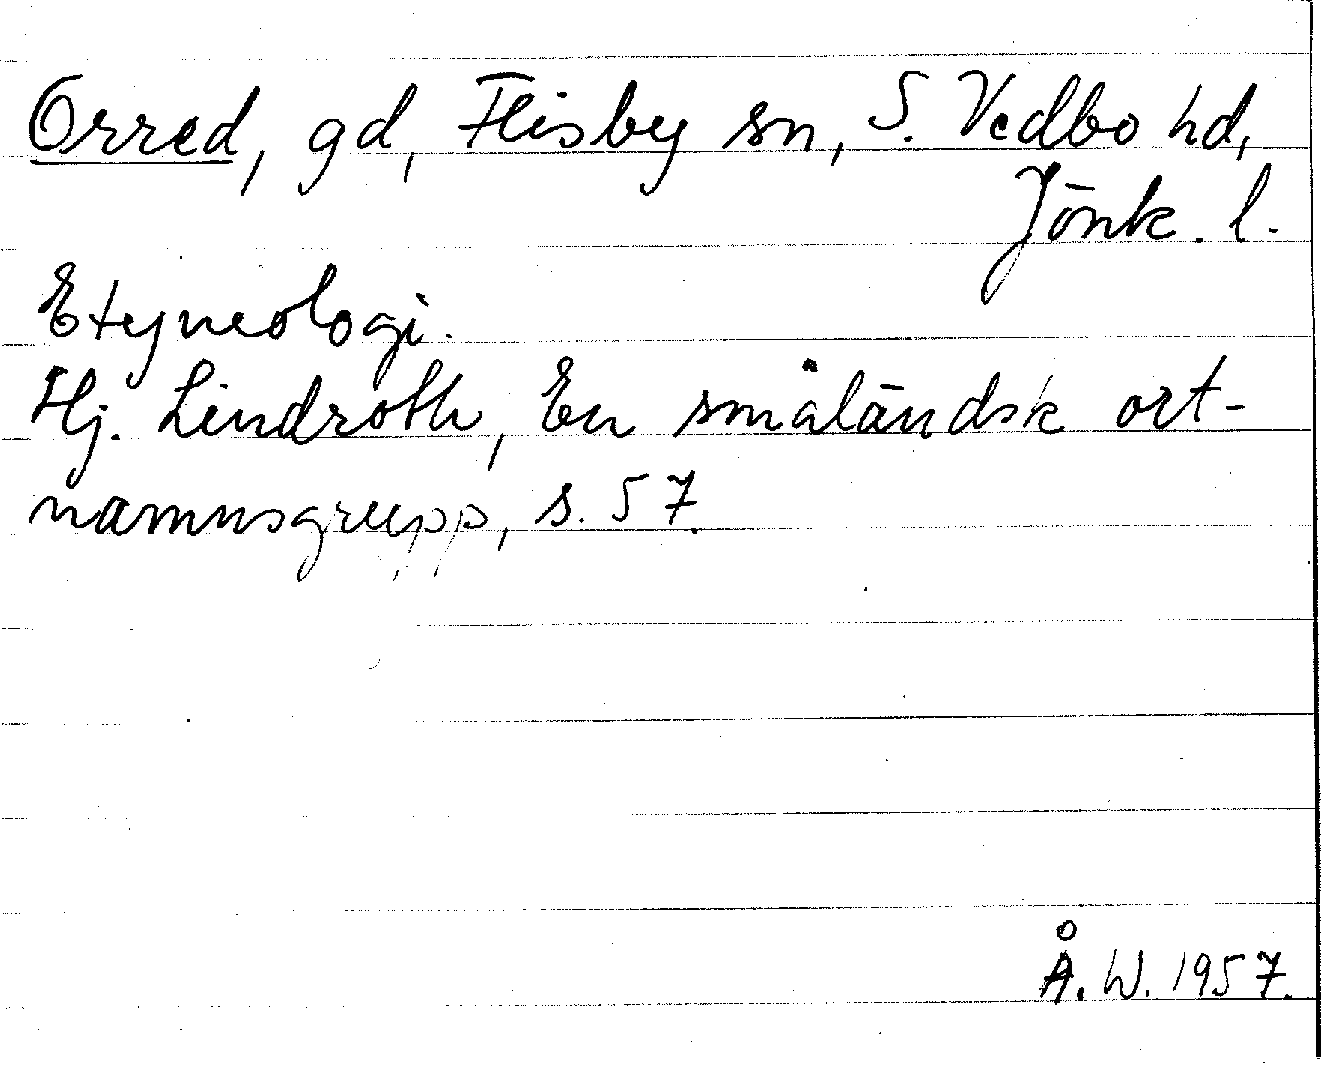 Orred, gd, Flisby sn, S. Vedbo hd,
Jönk. l.
Etymologi.
Hj. Lindroth, En småländsk ort-
namnsgrupp, s. 57.
Å. W. 1957.